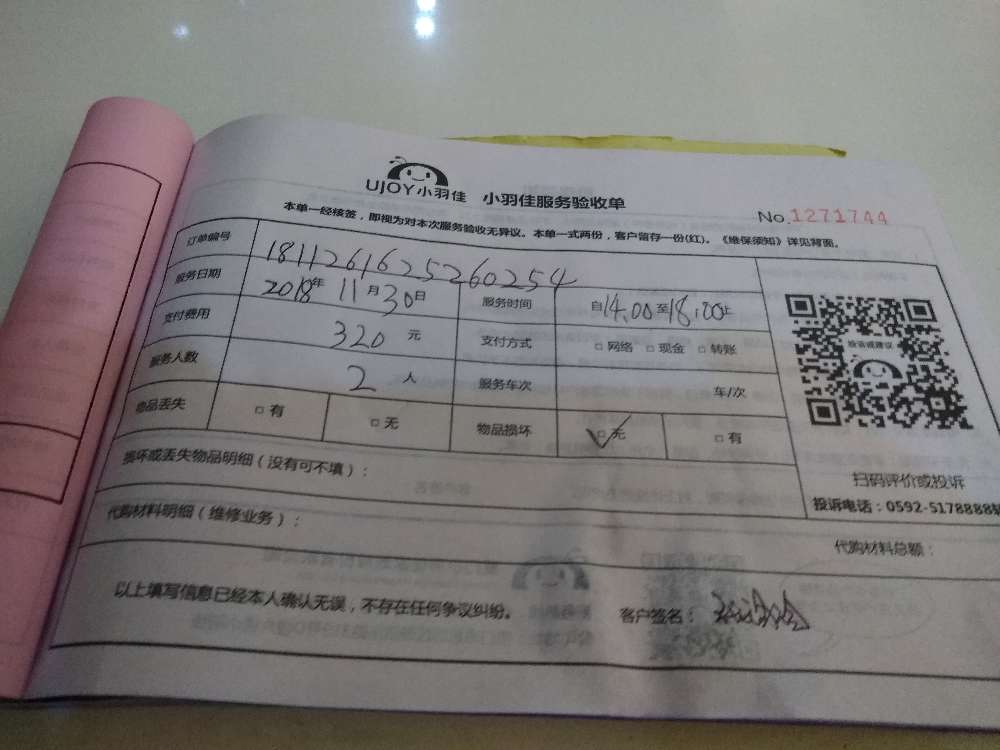 UJOY小羽佳 小羽佳服务验收单
No.1271744
本单一经核签，即视为对本次服务验收无异议。本单一式两份，客户留存一份(红)。《维保须知》详见背面。
订单编号 1811261625260254
服务日期 2018年 11月30日 服务时间 自14.00至18:00止
支付费用 320 元 支付方式 □ 网络 □ 现金 □ 转账
服务人数 2 人 服务车次 车/次
物品丢失 □ 有 □ 无 物品损坏 □ 无 □ 有
损坏或丢失物品明细（没有可不填）：
投诉或建议
扫码评价或投诉
投诉电话：0592-5178888转
代购材料明细（维修业务）：
代购材料总额：
以上填写信息已经本人确认无误，不存在任何争议纠纷。 客户签名：